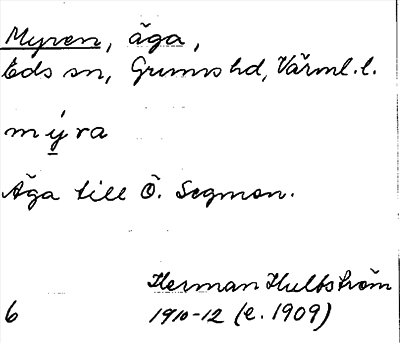 Myren, äga,
Eds sn, Grums hd, Värml. l.
mýra
Äga till Ö. Segmon.
Herman Hultström
6 1910-12 (e. 1909)